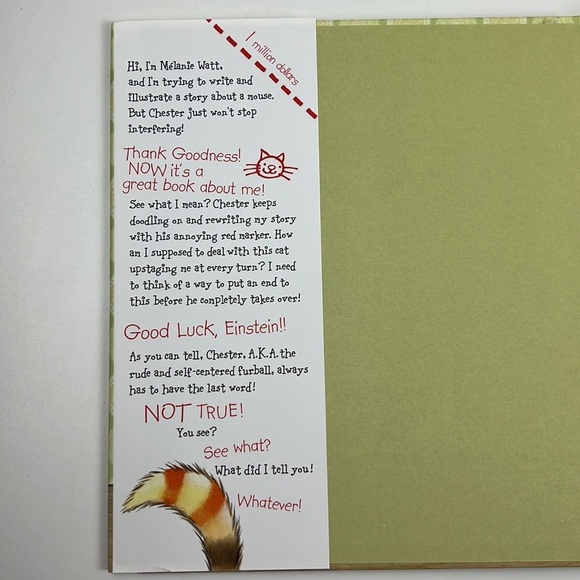 1 million dollars
Hi, I'm Mélanie Watt,
and I'm trying to write and
illustrate a story about a mouse.
But Chester just won't stop
interfering!
Thank Goodness!
NOW it's a
great book about me!
See what I mean? Chester keeps
doodling on and rewriting my story
with his annoying red marker. How
am I supposed to deal with this cat
upstaging me at every turn? I need
to think of a way to put an end to
this before he completely takes over!
Good Luck, Einstein!!
As you can tell, Chester, A.K.A. the
rude and self-centered furball, always
has to have the last word!
NOT TRUE!
You see?
See what?
What did I tell you!
Whatever!